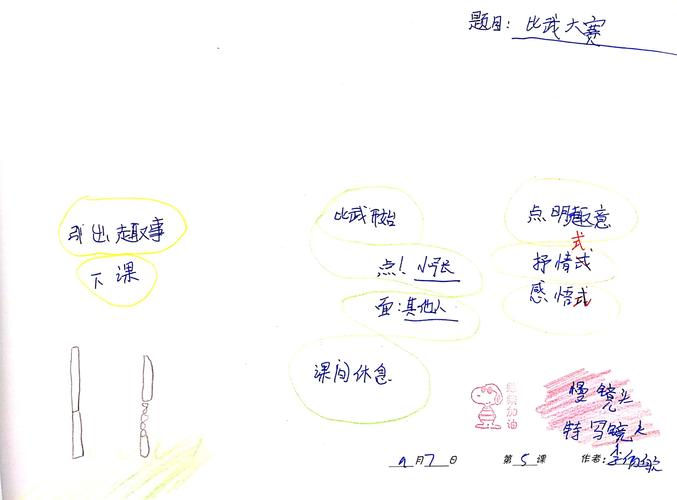 题目: 比武大赛
引出趣事
下课
比武开始
点! 小张
面:其他人
课间休息
点明趣意
式
抒情式
感悟式
继续加油
慢镜头
特写镜头
9月7日 第5课 作者:李